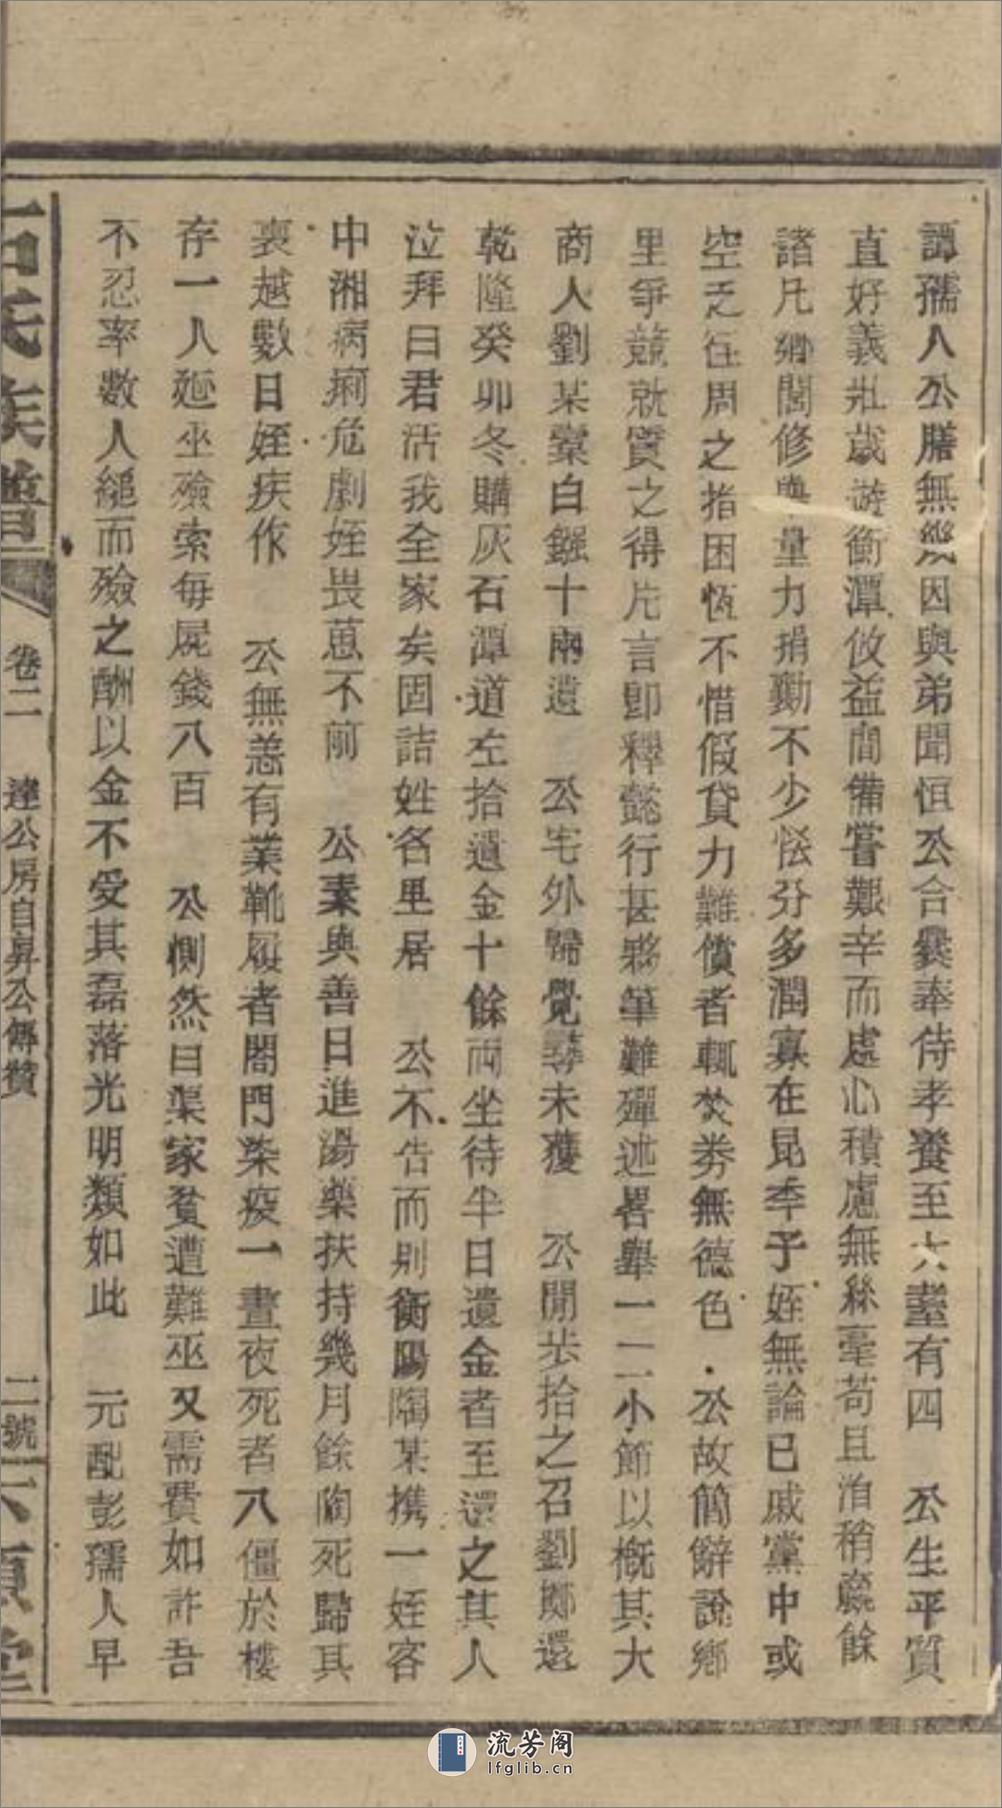 譚孺人公膳無幾因與弟聞恒公合爨奉侍孝養至大耋有四　公生平質
直好義壯歲遊衡潭攸益間備嘗艱辛而處心積慮無絲毫苟且洎稍贏餘
諸凡鄉閭修興量力捐勷不少恡分多潤寡在昆季子姪無論已戚黨中或
空乏在周之指囷恆不惜假貸力難償者輒焚券無德色　公故簡辭說鄉
里爭競就質之得片言即釋懿行甚夥筆難殫述畧舉一二小節以概其大
商人劉某橐白鏹十兩遺　公宅外歸覺尋未獲　公閒步拾之召劉擲還
乾隆癸卯冬購灰石潭道左拾遺金十餘兩坐待半日遺金者至還之其人
泣拜曰君活我全家矣固詰姓名里居　公不告而別衡陽陶某携一姪客
中湘病痢危劇姪畏葸不前　公素與善日進湯藥扶持幾月餘陶死歸其
喪越數日姪疾作　公無恙有業靴履者闔門染疫一晝夜死者八僵於樓
存一人廹巫殮索每屍錢八百　公惻然曰渠家貧遭難巫又需費如許吾
不忍率數人縋而殮之酬以金不受其磊落光明類如此　元配彭孺人早
石氏族譜　卷二　達公房自昇公傳贊　二號　六順堂
流芳阁
lfglib.cn